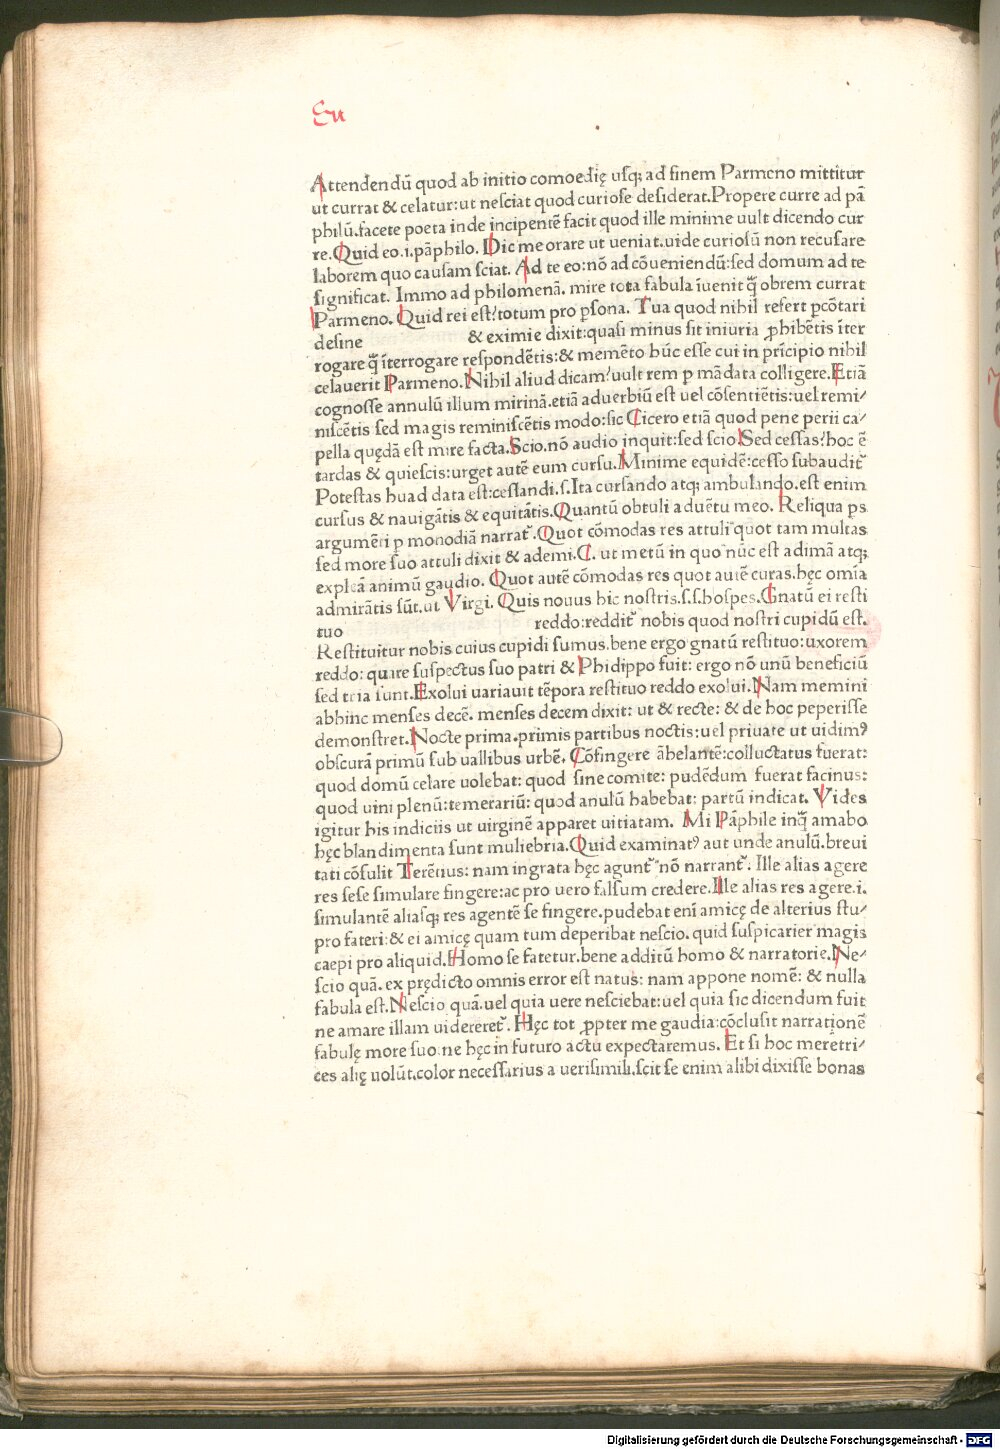 Eu
Attendendū quod ab initio comoedię uſq; ad finem Parmeno mittitur
ut currat & celatur:ut neſciat quod curioſe deſiderat.Propere curre ad pā
philū.facete poeta inde incipentē facit quod ille minime uult dicendo cur
re.Quid eo.i.pāphilo. Dic me orare ut ueniat.uide curioſū non recuſare
laborem quo cauſam ſciat. Ad te eo:nō ad cōueniendū:ſed domum ad te
ſignificat. Immo ad philomenā. mire tota fabula iuenit q̄ obrem currat
Parmeno. Quid rei eſt?totum pro pſona. Tua quod nihil refert pcōtari
deſine & eximie dixit:quaſi minus ſit iniuria ꝓhibētis īter
rogare q̄ īterrogare reſpondētis:& memēto hūc eſse cui in prīcipio nihil
celauerit Parmeno.Nihil aliud dicam?uult rem p mādata colligere.Etiā
cognoſſe annulū illum mirinā.etiā aduerbiū eſt uel cōſentiētis:uel remi/
niſcētis ſed magis reminiſcētis modo:ſic Cicero etiā quod pene perii ca/
pella quędā eſt mire facta.Scio.nō audio inquit:ſed ſcio.Sed ceſſas?hoc ē
tardas & quieſcis:urget autē eum curſu.Minime equidē:ceſſo ſubaudit᷑
Poteſtas huad data eſt:ceſſandi.ſ.Ita curſando atq; ambulando.eſt enim
curſus & nauigātis & equitātis.Quantū obtuli aduētu meo. Reliqua ps
argumēti p monodiā narrat᷑.Quot cōmodas res attuli quot tam multas
ſed more ſuo attuli dixit & ademi.C. ut metū in quo nūc eſt adimā atq;
expleā animū gaudio. Quot autē cōmodas res quot autē curas.hęc omīa
admirātis ſūt.ut Virgi. Quis nouus hic noſtris.ſ.ſ.hoſpes.Gnatū ei reſti
tuo reddo:reddit᷑ nobis quod noſtri cupidū eſt.
Reſtituitur nobis cuius cupidi ſumus.bene ergo gnatū reſtituo:uxorem
reddo: quare ſuſpectus ſuo patri & Phidippo fuit: ergo nō unū beneficiū
ſed tria ſunt.Exolui uariauit tēpora reſtituo reddo exolui.Nam memini
abhinc menſes decē. menſes decem dixit: ut & recte: & de hoc peperiſſe
demonſtret.Nocte prima.primis partibus noctis:uel priuate ut uidimꝰ
obſcurā primū ſub uallibus urbē. Cōfingere āhelantē:colluctatus fuerat:
quod domū celare uolebat: quod ſine comite: pudēdum fuerat facinus:
quod uini plenū:temerariū: quod anulū habebat: partū indicat. Vides
igitur his indiciis ut uirginē apparet uitiatam. Mi Pāphile inq̄ amabo
hęc blandimenta ſunt muliebria.Quid examinatꝰ aut unde anulū.breui
tati cōſulit Terētius: nam ingrata hęc agunt᷑ nō narrant᷑. Ille alias agere
res ſeſe ſimulare fingere:ac pro uero falſum credere.Ille alias res agere.i.
ſimulantē aliaſq; res agentē ſe fingere.pudebat enī amicę de alterius ſtu/
pro fateri:& ei amicę quam tum deperibat neſcio.quid ſuſpicarier magis
caepi pro aliquid.Homo ſe fatetur.bene additū homo & narratorie.Ne/
ſcio quā.ex prędicto omnis error eſt natus: nam appone nomē: & nulla
fabula eſt.Neſcio quā.uel quia uere neſciebat:uel quia ſic dicendum fuit
ne amare illam uidereret᷑. Hęc tot ꝓpter me gaudia:cōcluſit narrationē
fabulę more ſuo:ne hęc in futuro actu expectaremus. Et ſi hoc meretri/
ces alię uolūt.color neceſſarius a ueriſimili.ſcit ſe enim alibi dixiſſe bonas
Digitalisierung gefördert durch die Deutsche Forschungsgemeinschaft - DFG